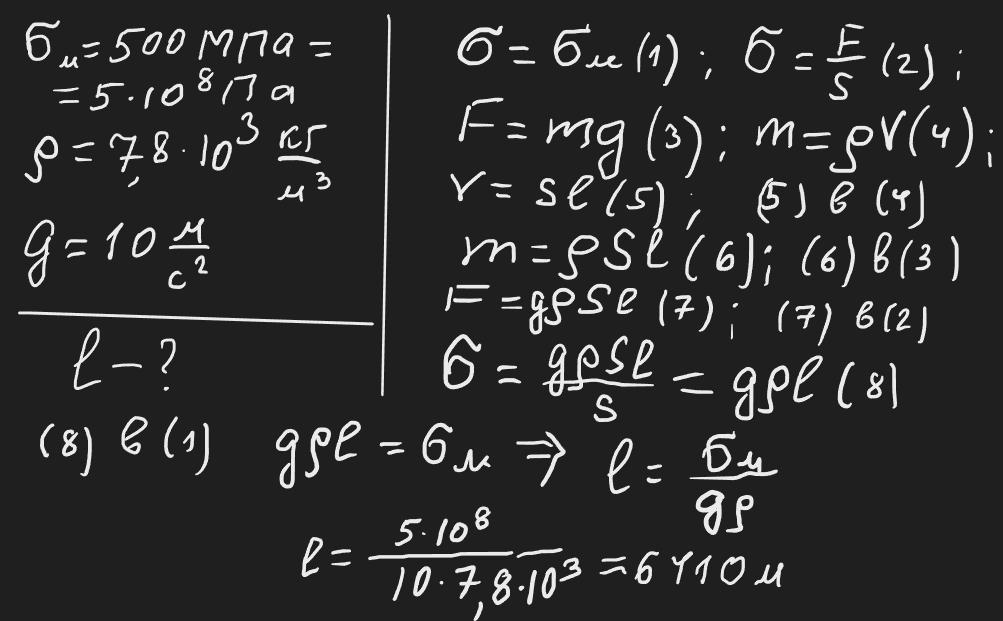 σм = 500 МПа =
= 5·10⁸ Па
ρ = 7,8·10³ кг/м³
g = 10 м/с²
l – ?
σ = σм (1); σ = F/S (2);
F = mg (3); m = ρV (4);
V = Sl (5); (5) в (4)
m = ρSl (6); (6) в (3)
F = gρSl (7); (7) в (2)
σ = gρSl/S = gρl (8)
(8) в (1) gρl = σм ⇒ l = σм/gρ
l = 5·10⁸/10·7,8·10³ = 6410 м